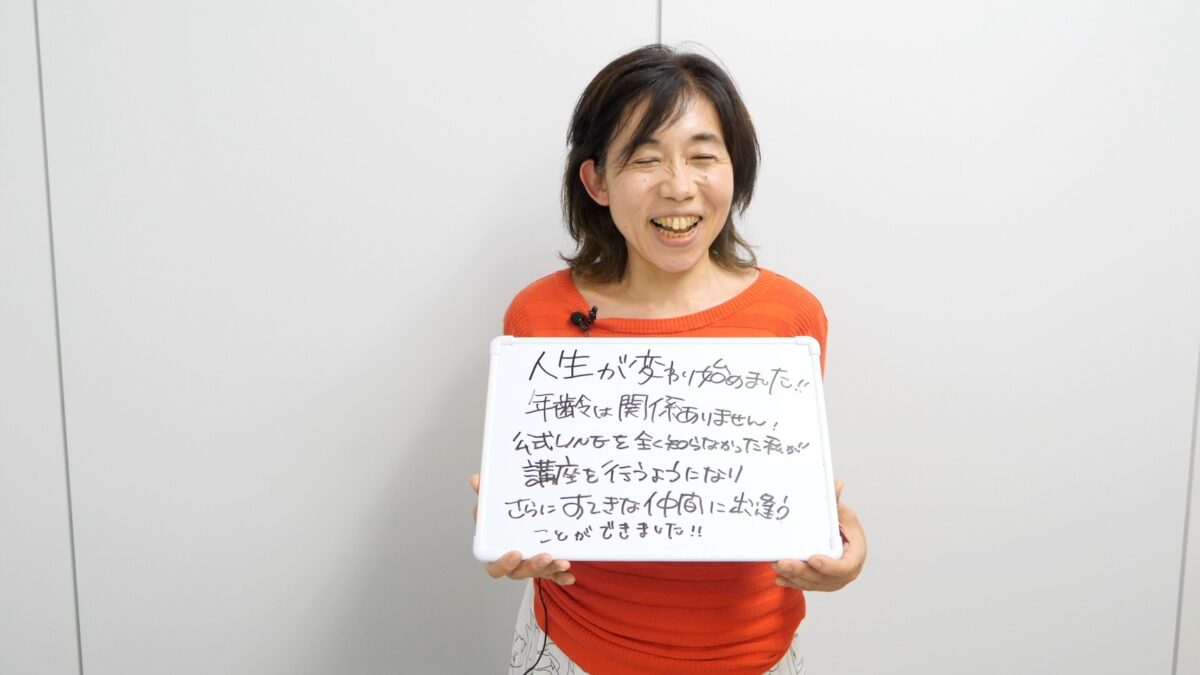 人生が変わり始めました!!
年齢は関係ありません!
公式LINEを全く知らなかった私が!!
講座を行うようになり
さらにすてきな仲間に出逢う
ことができました!!